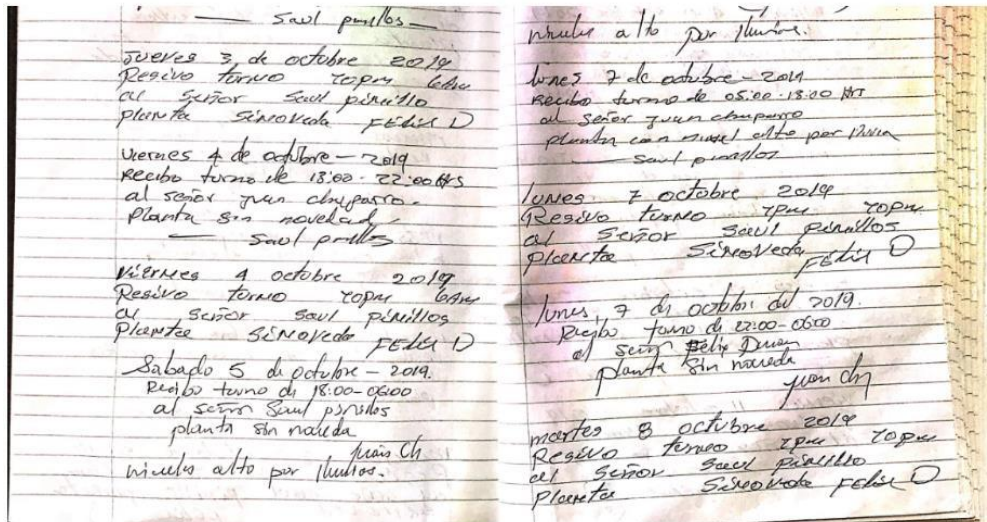 Saul pinillos
Jueves 3 de octubre 2019
Resivo turno 10pm 6Am
al señor Saul pinillo
planta SinoVeda FELIX D
Viernes 4 de octubre - 2019
Recibo turno de 18:00 - 22:00 Hrs
al señor juan chaparro.
planta sin novedad
Saul pinillos
Viernes 4 octubre 2019
Resivo turno 10pm 6Am
al Señor Saul pinillos
Planta SinoVeda FELIX D
Sabado 5 de octubre - 2019.
Recibo turno de 18:00-06:00
al señor Saul pinillos
planta sin noveda
Juan Ch
niveles alto por lluvias.
niveles alto por lluvias.
lunes 7 de octubre - 2019
Recibo turno de 05:00 - 18:00 Hrs
al señor juan chaparro
planta con nivel alto por lluvia
Saul pinillos
lunes 7 octubre 2019
Resivo turno 1pm 10pm
al Señor Saul pinillos
planta SinoVeda FELIX D
lunes, 7 de octubre del 2019.
Recibo turno de 22:00-06:00
al señor Felix Duran
planta sin noveda
Juan Ch
martes 8 octubre 2019
Resivo turno 1pm 10pm
al Señor Saul pinillo
planta SinoVeda Felix D